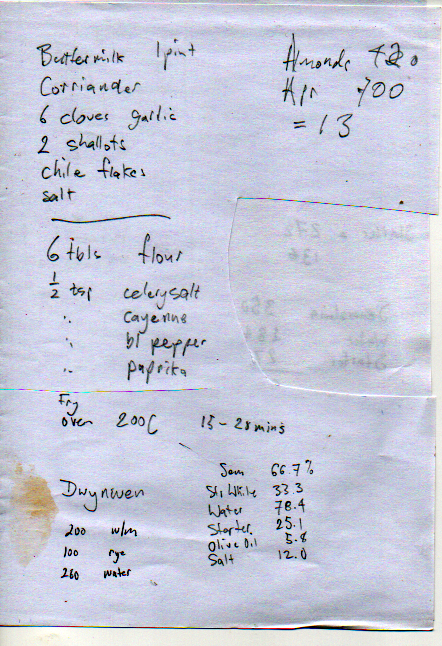 Buttermilk 1 pint
Corriander
6 cloves garlic
2 shallots
chile flakes
salt
Almonds
Apr 700
= 13
6 tbls flour
1/2 tsp celery salt
" cayenne
" bl pepper
" paprika
Fry
over 200C 15-25 mins
Dwynwen
200 w/m
100 rye
260 water
Sem 66.7%
Str White 33.3
Water 78.4
Starter 25.1
Olive Oil 5.8
Salt 12.0